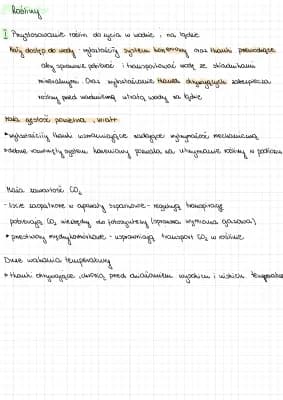 Rośliny
I Przystosowanie roślin do życia w wodzie i na lądzie
Mały dostęp do wody - wykształciły system korzeniowy oraz tkanki przewodzące
aby sprawnie pobierać i transportować wodę ze składnikami
mineralnymi. Oraz wykształcenie tkanek okrywających zabezpiecza
rośliny przed nadmierną utratą wody na lądzie
Mała gęstość powietrza, wiatr
• wykształciły tkanki wzmacniające nadające wytrzymałość mechaniczną
• dobrze rozwinięty system korzeniowy pozwala na utrzymanie rośliny w podłożu
Mała zawartość CO₂
- liście zaopatrzone w aparaty szparkowe - regulują transpirację
pobierają CO₂ niezbędny do fotosyntezy (sprawna wymiana gazowa)
• przestwory międzykomórkowe - usprawniają transport CO₂ w roślinie
Duże wahania temperatury
• tkanki okrywające, chronią przed działaniem wysokich i niskich temperatur